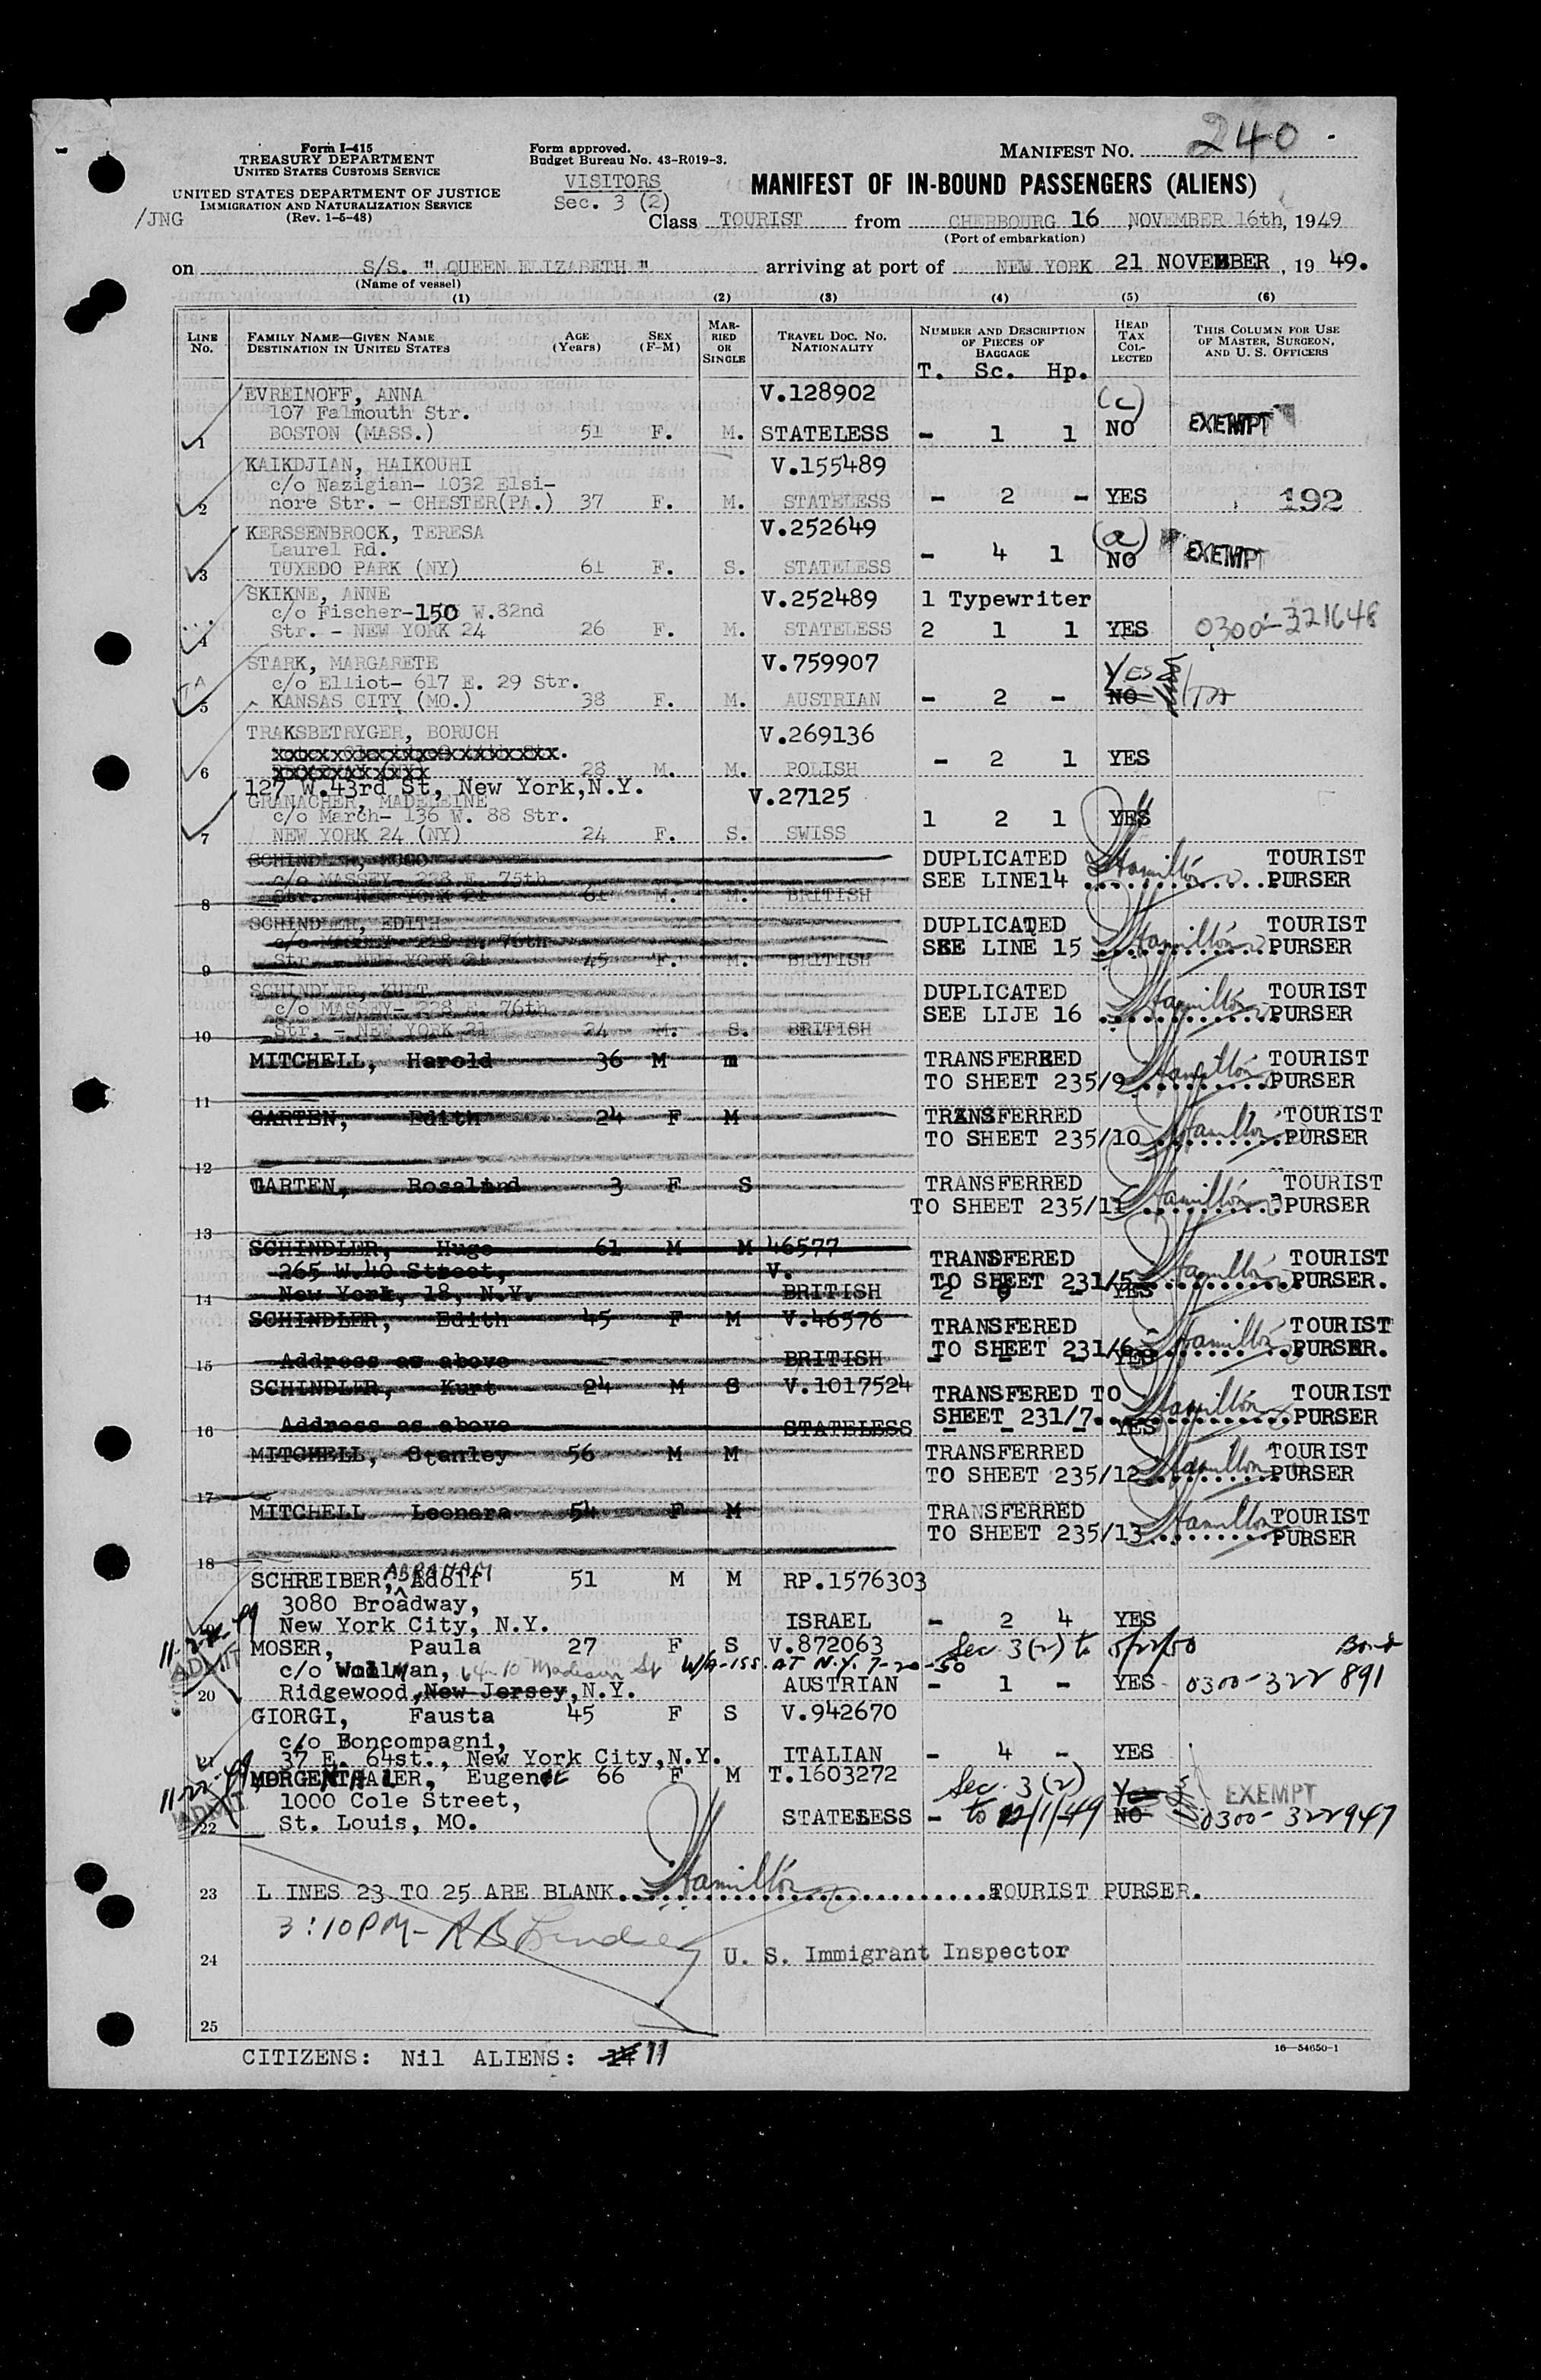 240
Form I-415
TREASURY DEPARTMENT
UNITED STATES CUSTOMS SERVICE
UNITED STATES DEPARTMENT OF JUSTICE
IMMIGRATION AND NATURALIZATION SERVICE
(Rev. 1-5-48)
/JNG
Form approved.
Budget Bureau No. 43-R019-3.
VISITORS
Sec. 3 (2)
MANIFEST NO.
MANIFEST OF IN-BOUND PASSENGERS (ALIENS)
Class TOURIST from CHERBOURG 16 , NOVEMBER 16th, 1949
(Port of embarkation)
on S/S. " QUEEN ELIZABETH " arriving at port of NEW YORK 21 NOVEMBER , 19 49.
(Name of vessel)
(1) (2) (3) (4) (5) (6)
LINE NO.
FAMILY NAME—GIVEN NAME
DESTINATION IN UNITED STATES
AGE (Years)
SEX (F-M)
MARRIED OR SINGLE
TRAVEL DOC. NO.
NATIONALITY
NUMBER AND DESCRIPTION OF PIECES OF BAGGAGE
T. Sc. Hp.
HEAD TAX COLLECTED
THIS COLUMN FOR USE OF MASTER, SURGEON, AND U. S. OFFICERS
EVREINOFF, ANNA V.128902 (c)
107 Falmouth Str.
1 BOSTON (MASS.) 51 F. M. STATELESS - 1 1 NO EXEMPT
KAIKDJIAN, HAIKOUHI V.155489
c/o Nazigian- 1032 Elsi-
2 nore Str. - CHESTER(PA.) 37 F. M. STATELESS - 2 - YES 192
KERSSENBROCK, TERESA V.252649 (a)
Laurel Rd.
3 TUXEDO PARK (NY) 61 F. S. STATELESS - 4 1 NO EXEMPT
SKIKNE, ANNE V.252489 1 Typewriter
c/o Fischer-150 W.82nd
4 Str. - NEW YORK 24 26 F. M. STATELESS 2 1 1 YES 0300-321648
STARK, MARGARETE V.759907 YES
c/o Elliot- 617 E. 29 Str.
5 KANSAS CITY (MO.) 38 F. M. AUSTRIAN - 2 - NO
TRAKSBETRYGER, BORUCH V.269136
6 28 M. M. POLISH - 2 1 YES
127 W.43rd St, New York,N.Y.
GRANACHER, MADELEINE V.27125
c/o March- 136 W. 88 Str.
7 NEW YORK 24 (NY) 24 F. S. SWISS 1 2 1 YES
SCHINDLER, HUGO DUPLICATED TOURIST
c/o MASSEY- 228 E. 75th SEE LINE14 Hamilton PURSER
8 Str. - NEW YORK 21 61 M. M. BRITISH
SCHINDLER, EDITH DUPLICATED TOURIST
c/o MASSEY- 228 E. 76th SEE LINE 15 Hamilton PURSER
9 Str. - NEW YORK 21 45 F. M. BRITISH
SCHINDLER, KURT DUPLICATED TOURIST
c/o MASSEY- 228 E. 76th SEE LIJE 16 Hamilton PURSER
10 Str. - NEW YORK 21 24 M. S. BRITISH
MITCHELL, Harold 36 M m TRANSFERRED TOURIST
11 TO SHEET 235/9 Hamilton PURSER
GARTEN, Edith 24 F M TRANSFERRED TOURIST
12 TO SHEET 235/10 Hamilton PURSER
GARTEN, Rosalind 3 F S TRANSFERRED TOURIST
13 TO SHEET 235/11 Hamilton PURSER
SCHINDLER, Hugo 61 M M 46577 TRANSFERED TOURIST
265 W.40 Street, V. TO SHEET 231/5 Hamilton PURSER.
14 New York, 18, N.Y. BRITISH 2 9 - YES
SCHINDLER, Edith 45 F M V.46576 TRANSFERED TOURIST
TO SHEET 231/6 Hamilton PURSER.
15 Address as above BRITISH - - - YES
SCHINDLER, Kurt 24 M S V.1017524 TRANSFERED TO TOURIST
SHEET 231/7 Hamilton PURSER
16 Address as above STATELESS - - - YES
MITCHELL, Stanley 56 M M TRANSFERRED TOURIST
17 TO SHEET 235/12 Hamilton PURSER
MITCHELL Leonora 54 F M TRANSFERRED TOURIST
18 TO SHEET 235/13 Hamilton PURSER
ABRAHAM
SCHREIBER, Adolf 51 M M RP.1576303
3080 Broadway,
New York City, N.Y. ISRAEL - 2 4 YES
11-22-49 ADMIT
MOSER, Paula 27 F S V.872063 Sec 3(2) to 5/22/50 Bond
c/o Wollman, 64-10 Madison St W/A-ISS. AT N.Y. 7-20-50
20 Ridgewood,New Jersey,N.Y. AUSTRIAN - 1 - YES 0300-322 891
GIORGI, Fausta 45 F S V.942670
c/o Boncompagni,
21 37 E. 64st., New York City,N.Y. ITALIAN - 4 - YES
11-22-49 ADMIT
MORGENTHALER, Eugenie 66 F M T.1603272 Sec. 3(2) Yes EXEMPT
1000 Cole Street,
22 St. Louis, MO. STATELESS - to 12/1/49 NO 0300-322947
23 L INES 23 TO 25 ARE BLANK Hamilton TOURIST PURSER.
3:10PM- R B Lindsey
24 U. S. Immigrant Inspector
25
CITIZENS: Nil ALIENS: 14 11
16—54650-1